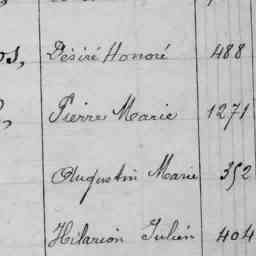 os, Désiré Honoré 488
Pierre Marie 1271
Augustin Marie 352
Hilarion Julien 404